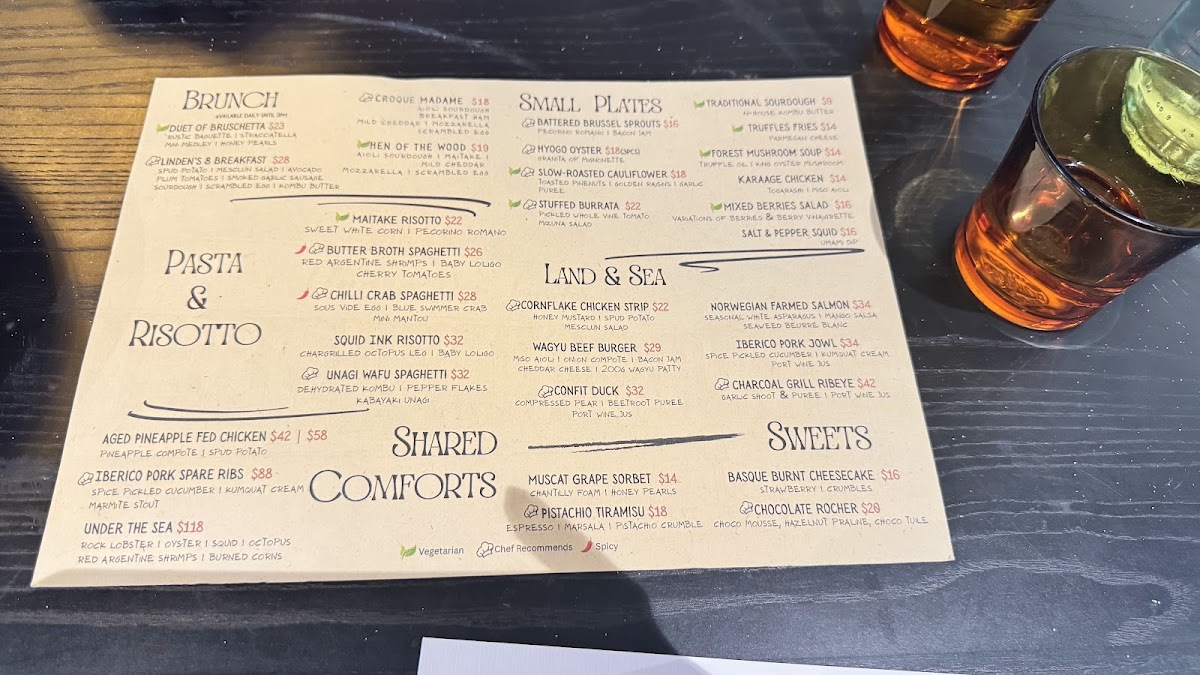 BRUNCH
AVAILABLE DAILY UNTIL 3PM
DUET OF BRUSCHETTA $23
RUSTIC BAGUETTE | STRACCIATELLA
MINI MEDLEY | HONEY PEARLS
LINDEN'S 8 BREAKFAST $28
SPUD POTATO | MESCLUN SALAD | AVOCADO
PLUM TOMATOES | SMOKED GARLIC SAUSAGE
SOURDOUGH | SCRAMBLED EGG | KOMBU BUTTER
CROQUE MADAME $18
AIOLI SOURDOUGH
BREAKFAST HAM
MILD CHEDDAR | MOZZARELLA
SCRAMBLED EGG
HEN OF THE WOOD $19
AIOLI SOURDOUGH | MAITAKE |
MILD CHEDDAR
MOZZARELLA | SCRAMBLED EGG
SMALL PLATES
BATTERED BRUSSEL SPROUTS $16
PECORINO ROMANO | BACON JAM
HYOGO OYSTER $18(3PCS)
GRANITA OF MIGNONETTE
SLOW-ROASTED CAULIFLOWER $18
TOASTED PINENUTS | GOLDEN RAISINS | GARLIC
PUREE
STUFFED BURRATA $22
PICKLED WHOLE VINE TOMATO
MIZUNA SALAD
TRADITIONAL SOURDOUGH $9
IN-HOUSE KOMBU BUTTER
TRUFFLES FRIES $14
PARMESAN CHEESE
FOREST MUSHROOM SOUP $14
TRUFFLE OIL | KING OYSTER MUSHROOM
KARAAGE CHICKEN $14
TOGARASHI | MISO AIOLI
MIXED BERRIES SALAD $16
VARIATIONS OF BERRIES & BERRY VINAIGRETTE
SALT & PEPPER SQUID $16
UMAMI DIP
PASTA
&
RISOTTO
MAITAKE RISOTTO $22
SWEET WHITE CORN | PECORINO ROMANO
BUTTER BROTH SPAGHETTI $26
RED ARGENTINE SHRIMPS | BABY LOLIGO
CHERRY TOMATOES
CHILLI CRAB SPAGHETTI $28
SOUS VIDE EGG | BLUE SWIMMER CRAB
MINI MANTOU
SQUID INK RISOTTO $32
CHARGRILLED OCTOPUS LEG | BABY LOLIGO
UNAGI WAFU SPAGHETTI $32
DEHYDRATED KOMBU | PEPPER FLAKES
KABAYAKI UNAGI
LAND & SEA
CORNFLAKE CHICKEN STRIP $22
HONEY MUSTARD | SPUD POTATO
MESCLUN SALAD
WAGYU BEEF BURGER $29
MISO AIOLI | ONION COMPOTE | BACON JAM
CHEDDAR CHEESE | 200G WAGYU PATTY
CONFIT DUCK $32
COMPRESSED PEAR | BEETROOT PUREE
PORT WINE JUS
NORWEGIAN FARMED SALMON $34
SEASONAL WHITE ASPARAGUS | MANGO SALSA
SEAWEED BEURRE BLANC
IBERICO PORK JOWL $34
SPICE PICKLED CUCUMBER | KUMQUAT CREAM
PORT WINE JUS
CHARCOAL GRILL RIBEYE $42
GARLIC SHOOT & PUREE | PORT WINE JUS
SHARED
COMFORTS
AGED PINEAPPLE FED CHICKEN $42 | $58
PINEAPPLE COMPOTE | SPUD POTATO
IBERICO PORK SPARE RIBS $88
SPICE PICKLED CUCUMBER | KUMQUAT CREAM
MARMITE STOUT
UNDER THE SEA $118
ROCK LOBSTER | OYSTER | SQUID | OCTOPUS
RED ARGENTINE SHRIMPS | BURNED CORNS
SWEETS
MUSCAT GRAPE SORBET $14
CHANTILLY FOAM | HONEY PEARLS
PISTACHIO TIRAMISU $18
ESPRESSO | MARSALA | PISTACHIO CRUMBLE
BASQUE BURNT CHEESECAKE $16
STRAWBERRY | CRUMBLES
CHOCOLATE ROCHER $20
CHOCO MOUSSE, HAZELNUT PRALINE, CHOCO TUILE
Vegetarian Chef Recommends Spicy